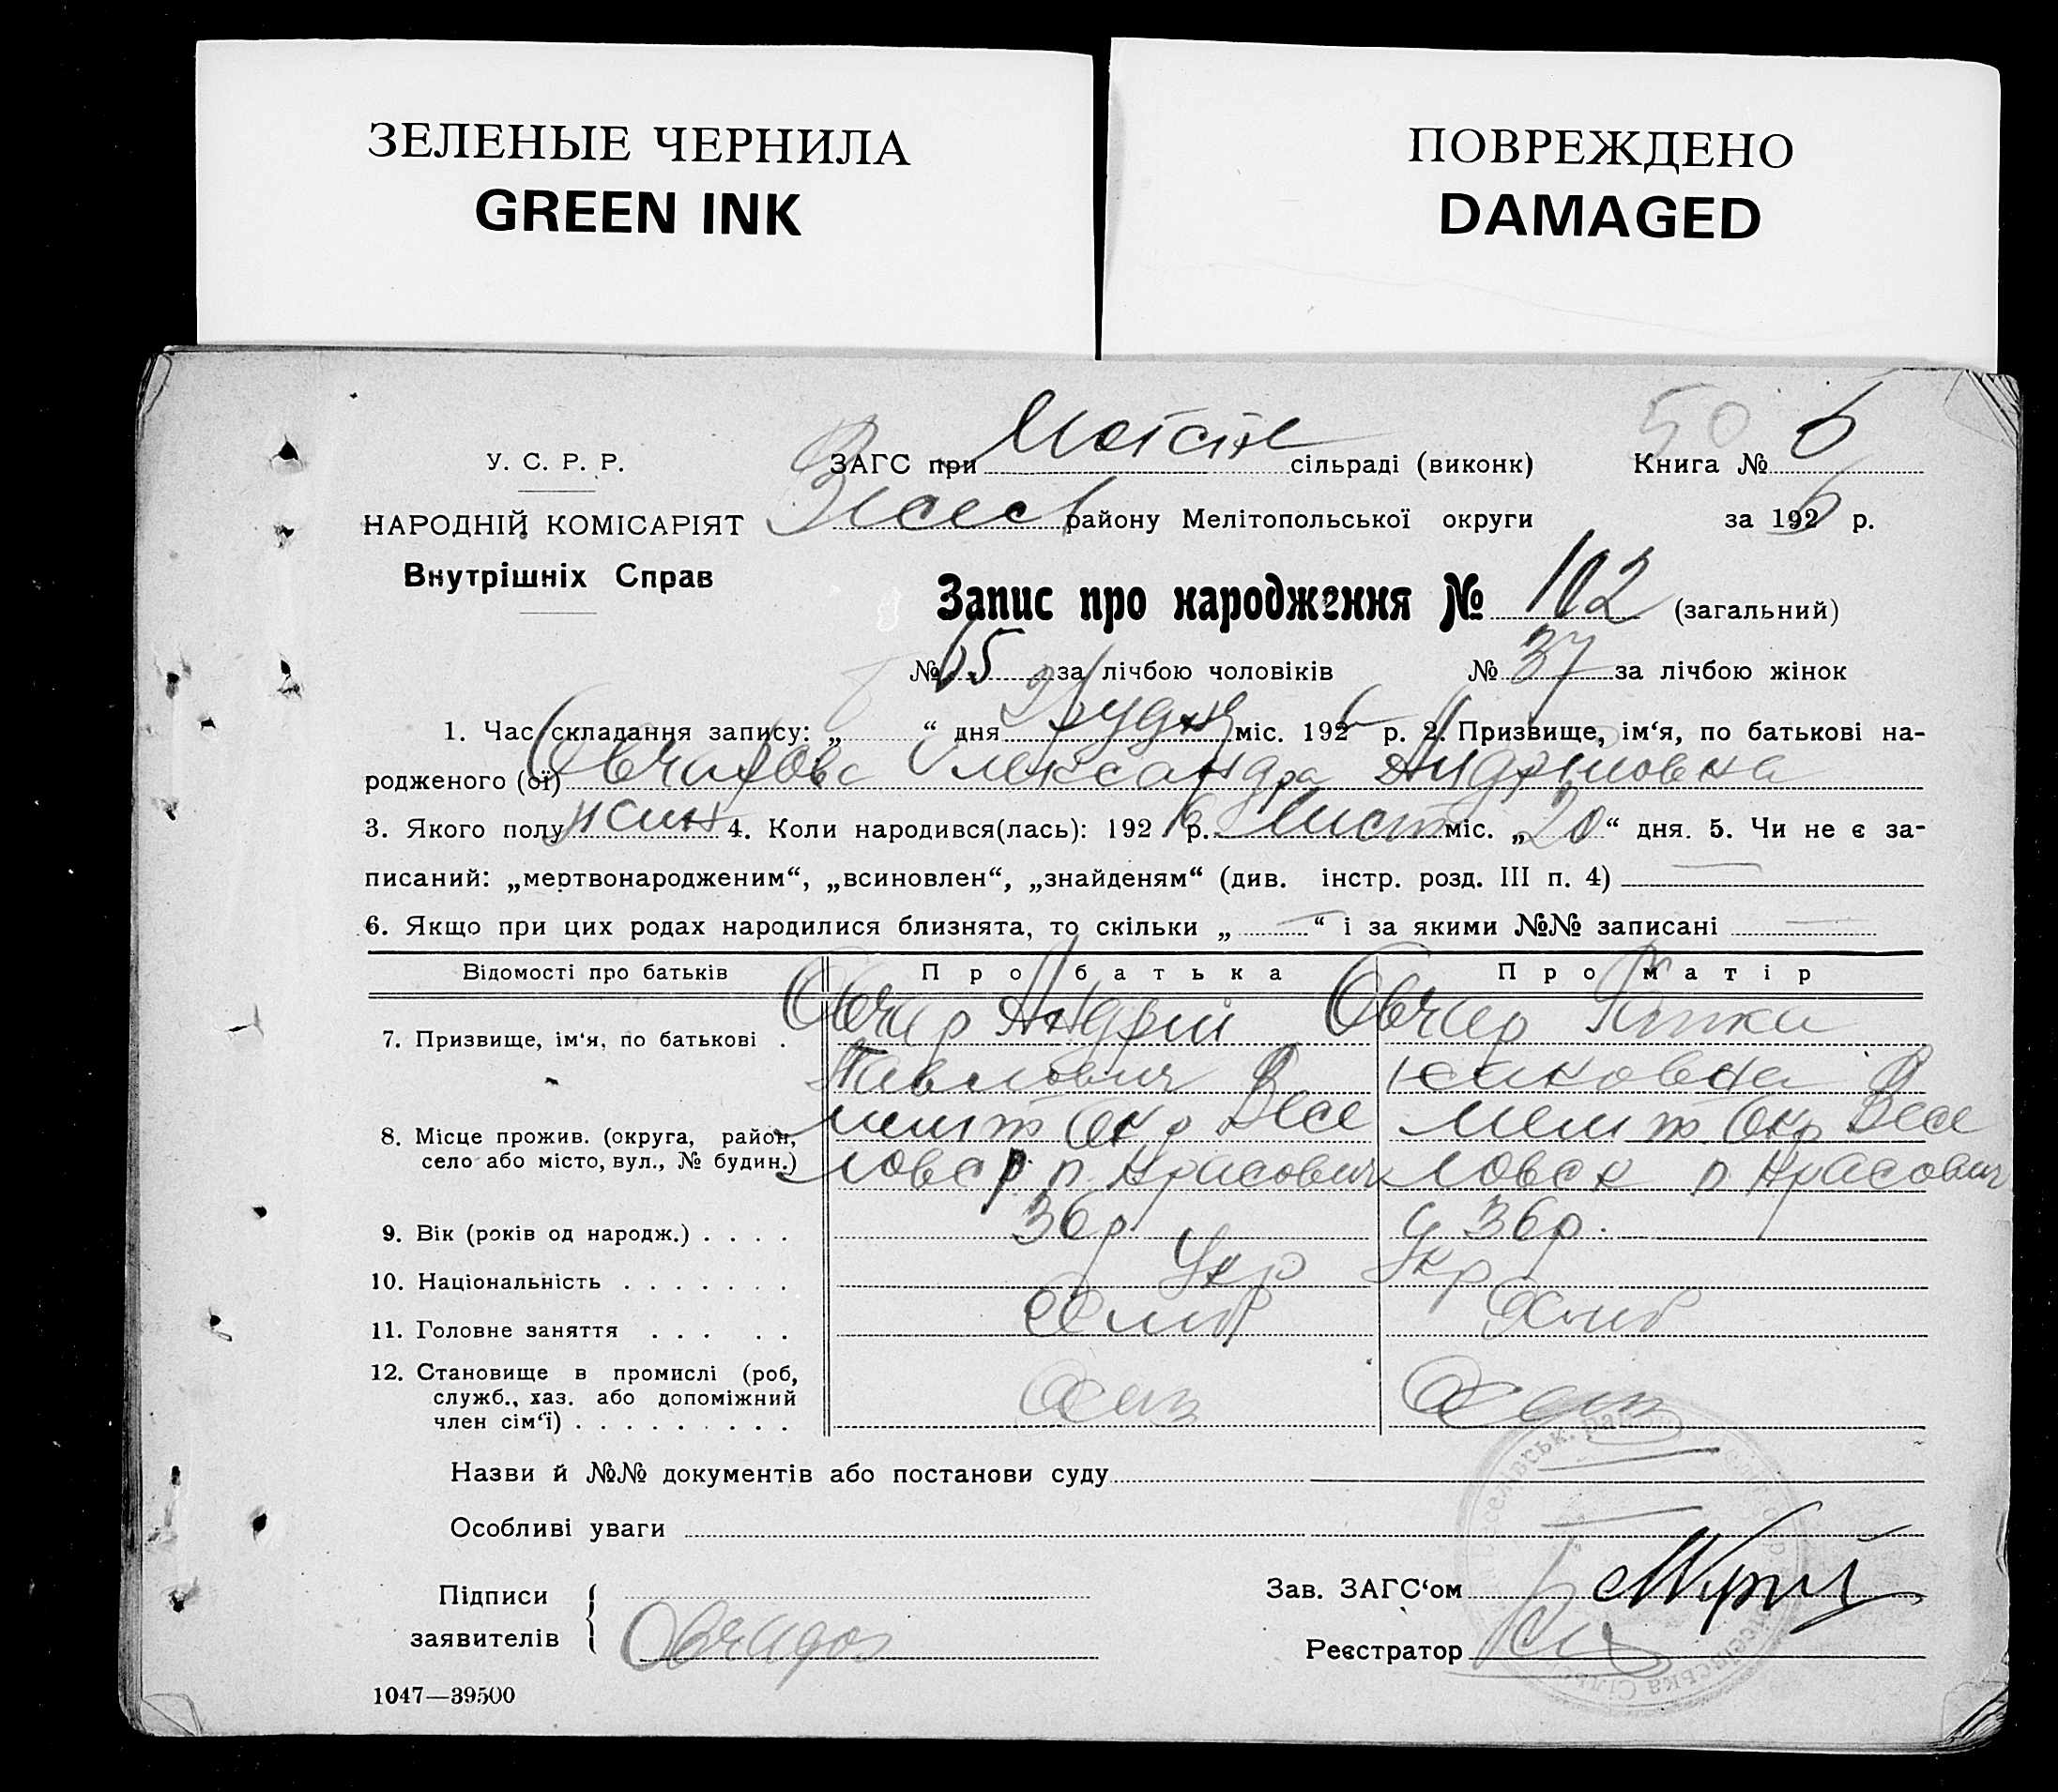 ЗЕЛЕНЫЕ ЧЕРНИЛА
GREEN INK
ПОВРЕЖДЕНО
DAMAGED
У. С. Р. Р.
НАРОДНІЙ КОМІСАРІЯТ
Внутрішніх Справ
ЗАГС при сільраді (виконк) Книга № 6
району Мелітопольської округи за 1926 р.
Запис про народження № 102 (загальний)
№ 65 за лічбою чоловіків № 37 за лічбою жінок
1. Час складання запису: „ “ дня Грудня міс. 1926 р. 2. Призвище, ім‘я, по батькові на-
родженого (ої) Овчарова Олександра Андрійовна
3. Якого полу жин 4. Коли народився(лась): 1926 р. Лист міс. „20“ дня. 5. Чи не є за-
писаний: „мертвонародженим“, „всиновлен“, „знайденям“ (див. інстр. розд. III п. 4) —
6. Якщо при цих родах народилися близнята, то скільки „ — “ і за якими №№ записані —
Відомості про батьків Про батька Про матір
7. Призвище, ім‘я, по батькові . Овчар Андрій Овчар
Павлович
8. Місце прожив. (округа, район, Мелит Окр Весе Мелит Окр Весе
село або місто, вул., № будин.) ловс р п
9. Вік (років од народж.) . . . . 36 р 36 р.
10. Національність . . . . . . . Укр Укр
11. Головне заняття . . . . .
12. Становище в промислі (роб,
служб., хаз. або допоміжний
член сім‘ї) . . . . . . . . .
Назви й №№ документів або постанови суду
Особливі уваги
Підписи
заявителів
Зав. ЗАГС‘ом
Реєстратор
1047—39500